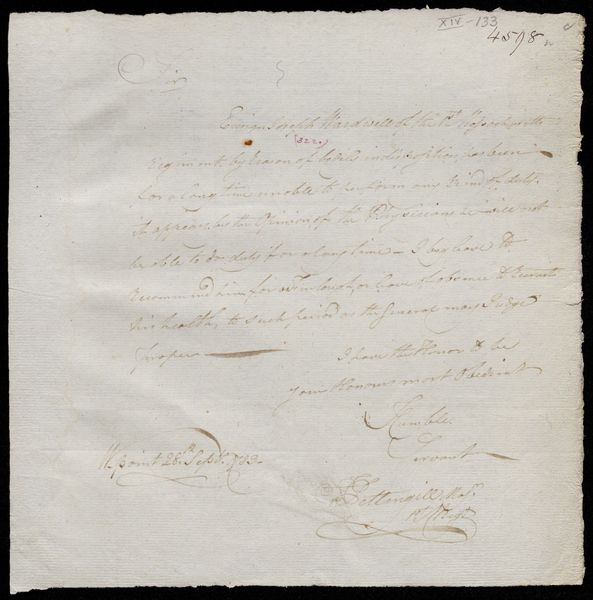 XIV-133
4598
Sir
Ensign Joseph Wardwell of the 1st Massachusetts
(3220)
Regiment, by reason of bodily indisposition, has been
for a long time unable to perform any kind of duty.
it appears, by the Opinion of the Physicians he will not
be able to do duty for a long time - I beg leave to
recommend him for a Furlough, or leave of absence to recruit
his health, to such period as the General may Judge
proper
I have the Honor to be
your Honours most Obedient
Humble
Servant
Wpoint 28th Sept. 1783.
Pettengill Majr
1st Regt